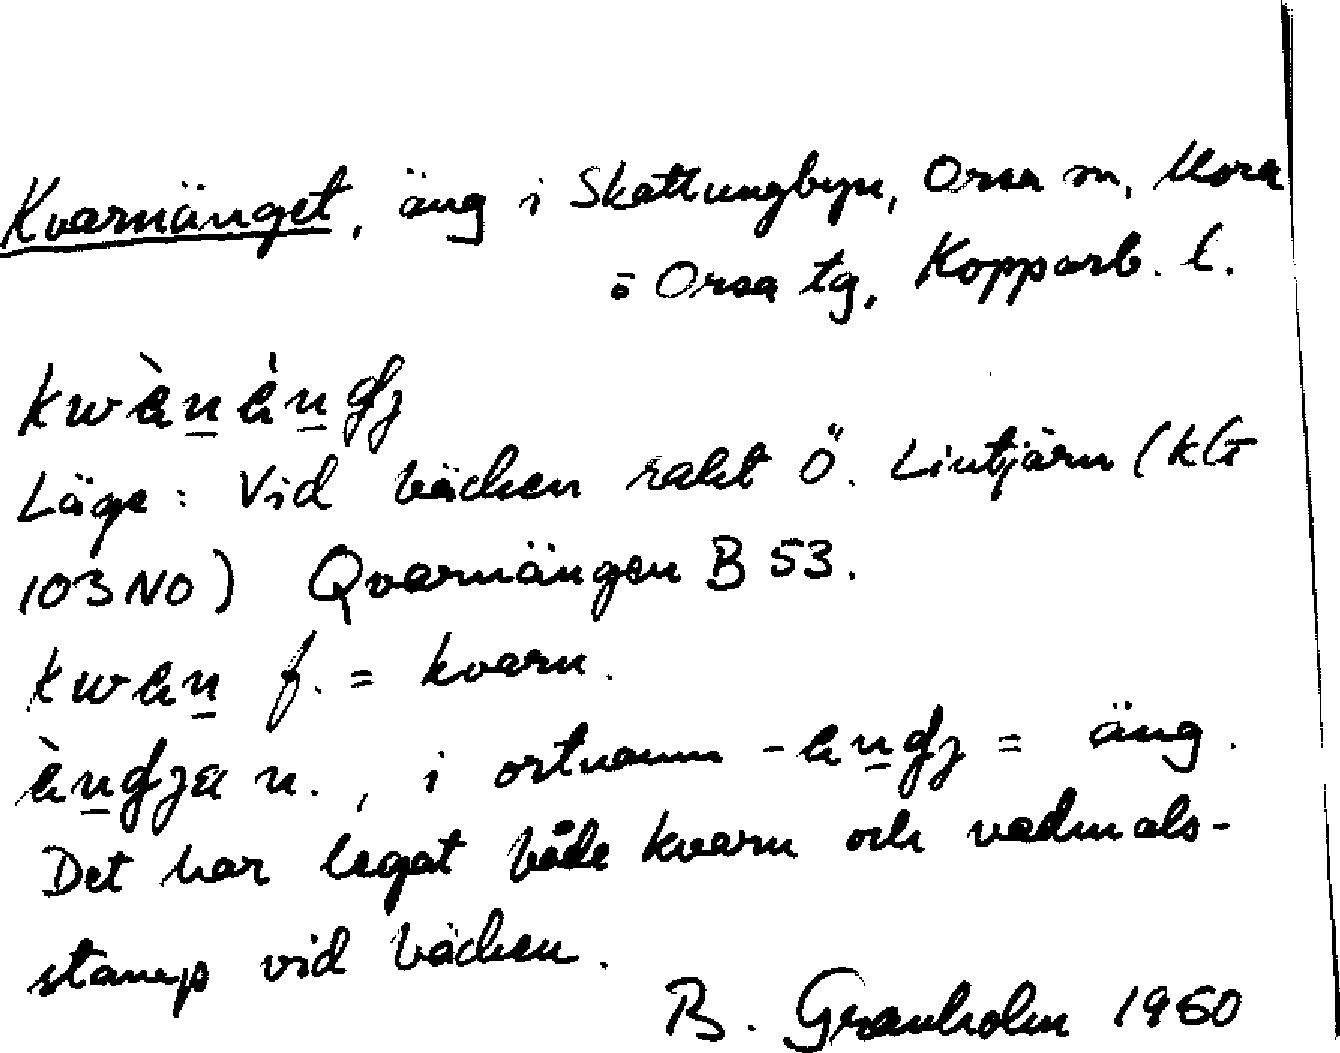 Kvarnänget, äng i Skattungbyn, Orsa sn, Mora
o Orsa tg, Kopparb. l.
kwèṉèṉdʒ
Läge: Vid bäcken rakt Ö. Lintjärn (kG
103 NO) Qvarnängen B 53.
kweṉ f. = kvarn.
èṉdʒa n., i ortnamn -eṉdʒ = äng.
Det har legat både kvarn och vadmals-
stamp vid bäcken.
B. Granholm 1960